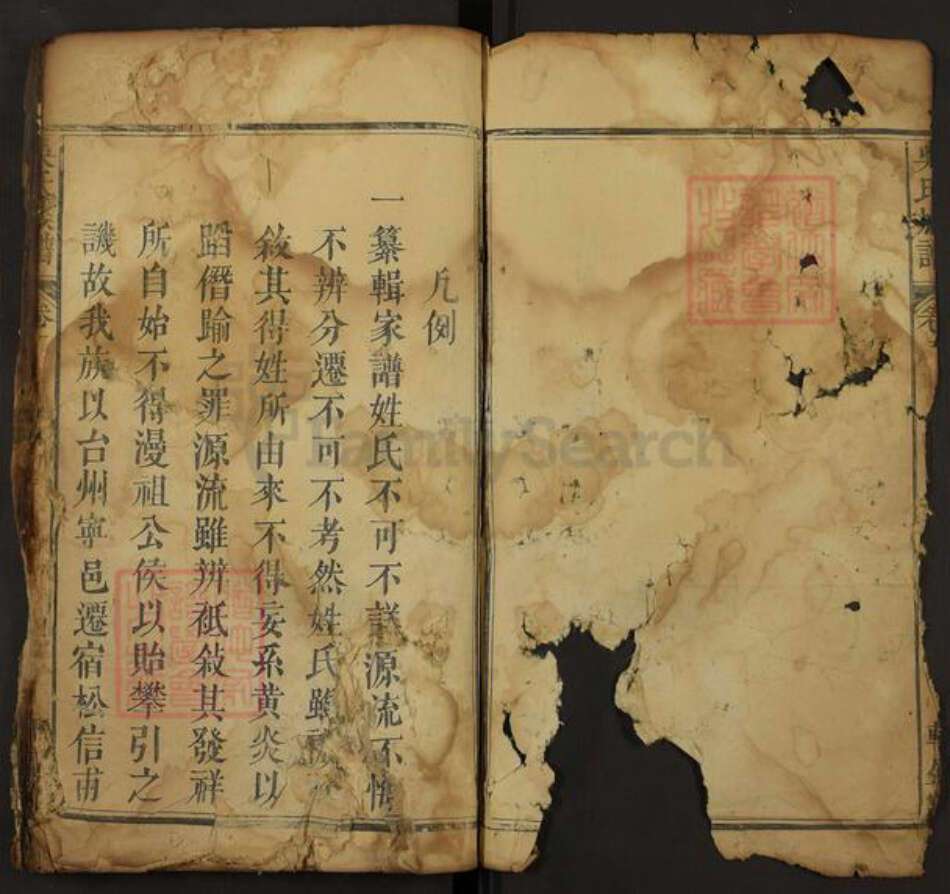 凡例
一纂輯家譜姓氏不可不詳源流不
不辨分遷不可不考然姓氏雖
敘其得姓所由來不得妄系黃炎以
蹈僭踰之罪源流雖辨祗敘其發祥
所自始不得漫祖公侯以貽攀引之
譏故我族以台州寧邑遷宿松信甫
氏族譜
FamilySearch